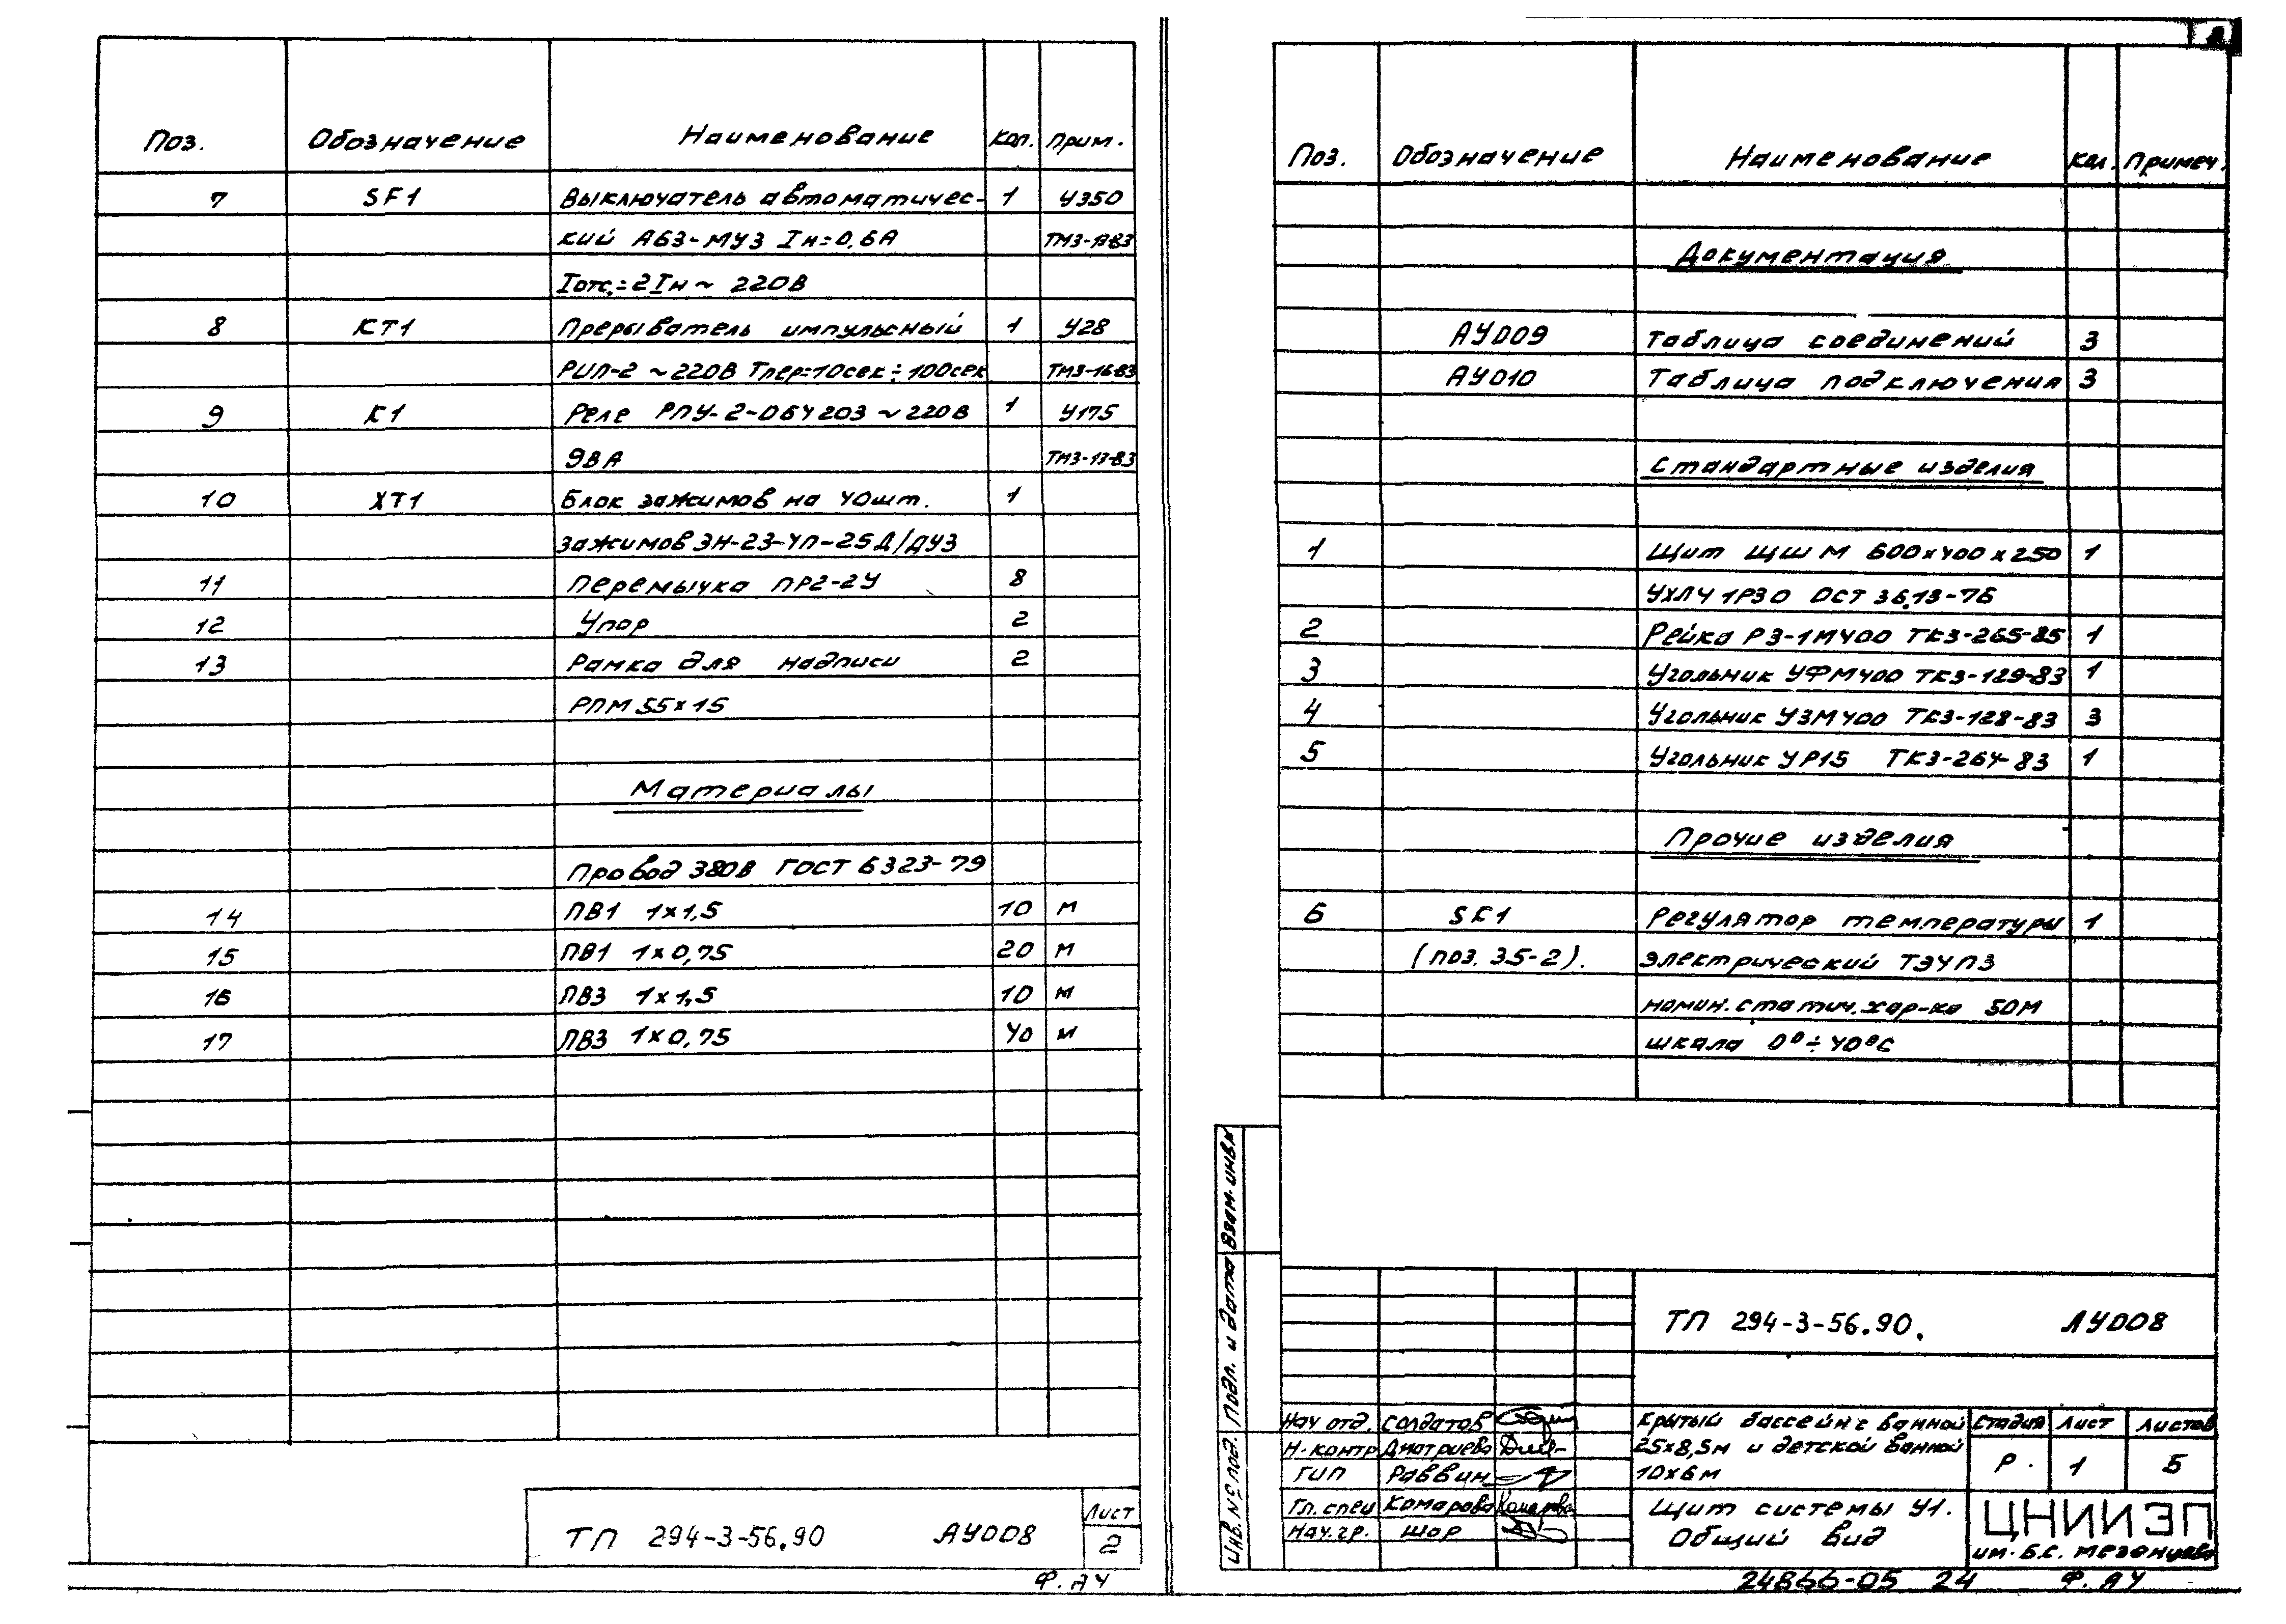 Поз. Обозначение Наименование Кол. Прим.
7 SF1 Выключатель автоматичес- 1 У350
кий А63-МУ3 Iн=0,6А ТМ3-13-83
Iотс.=2Iн ~ 220В
8 КТ1 Прерыватель импульсный 1 У28
РИП-2 ~220В Тпер=10сек÷100сек ТМ3-16-83
9 К1 Реле РПУ-2-06У203 ~220В 1 У175
9ВА ТМ3-13-83
10 ХТ1 Блок зажимов на 40шт. 1
зажимов ЗН-23-4П-25Д/ДУ3
11 Перемычка ПР2-2У 8
12 Упор 2
13 Рамка для надписи 2
РПМ 55х15
Материалы
Провод 380В ГОСТ 6323-79
14 ПВ1 1х1,5 10 м
15 ПВ1 1х0,75 20 м
16 ПВ3 1х1,5 10 м
17 ПВ3 1х0,75 40 м
ТП 294-3-56.90 АУ008
Лист
2
Ф. АУ
Поз. Обозначение Наименование Кол. Примеч.
Документация
АУ009 Таблица соединений 3
АУ010 Таблица подключения 3
Стандартные изделия
1 Щит ЩШМ 600х400х250 1
УХЛ4 1Р30 ОСТ 36.13-76
2 Рейка Р3-1М400 ТК3-265-85 1
3 Угольник УФМ400 ТК3-129-83 1
4 Угольник УЗМ400 ТК3-128-83 3
5 Угольник УР15 ТК3-264-83 1
Прочие изделия
6 SK1 Регулятор температуры 1
(поз. 35-2). электрический ТЭ4П3
номин. статич. хар-ка 50М
шкала 0°÷40°С
Взам. инв.№
Подп. и дата
Инв. № подл.
ТП 294-3-56.90. АУ008
Нач отд. Солдатов
Н. контр Дмитриева
ГИП Раввин
Гл. спец Комарова
Нач. гр. Шор
Крытый бассейн с ванной
25х8,5м и детской ванной
10х6м
Стадия Лист Листов
Р. 1 5
Щит системы У1.
Общий вид
ЦНИИЭП
им. Б.С. Мезенцева
24866-05 24 Ф. АУ